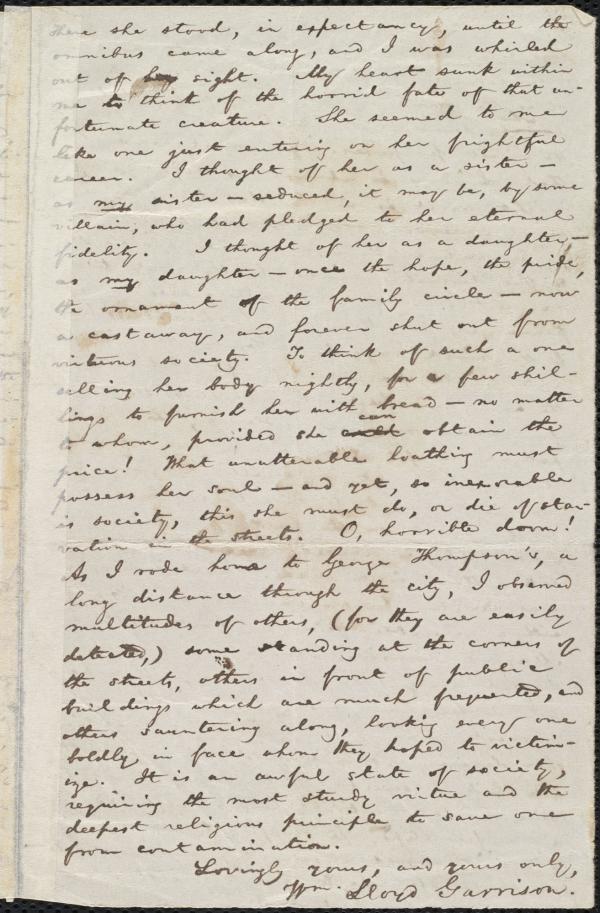 there she stood, in expectancy, until the
omnibus came along, and I was whirled
out of her sight. My heart sunk within
me to think of the horrid fate of that un-
fortunate creature. She seemed to me
like one just entering on her frightful
career. I thought of her as a sister —
as my sister — seduced, it may be, by some
villain, who had pledged to her eternal
fidelity. I thought of her as a daughter, —
as my daughter — once the hope, the pride,
the ornament of the family circle — now
a castaway, and forever shut out from
virtuous society. To think of such a one
selling her body nightly, for a few shil-
lings to furnish her with bread — no matter
to whom, provided she can obtain the
price! What unutterable loathing must
possess her soul — and yet, so inexorable
is society, this she must do, or die of star-
vation in the streets. O, horrible doom!
As I rode home to George Thompson's, a
long distance through the city, I observed
multitudes of others, (for they are easily
detected,) some standing at the corners of
the streets, others in front of public
buildings which are much frequented, and
others sauntering along, looking every one
boldly in face whom they hoped to victim-
ize. It is an awful state of society,
requiring the most sturdy virtue and the
deepest religious principle to save one
from contamination.
Lovingly yours, and yours only,
Wm. Lloyd Garrison.